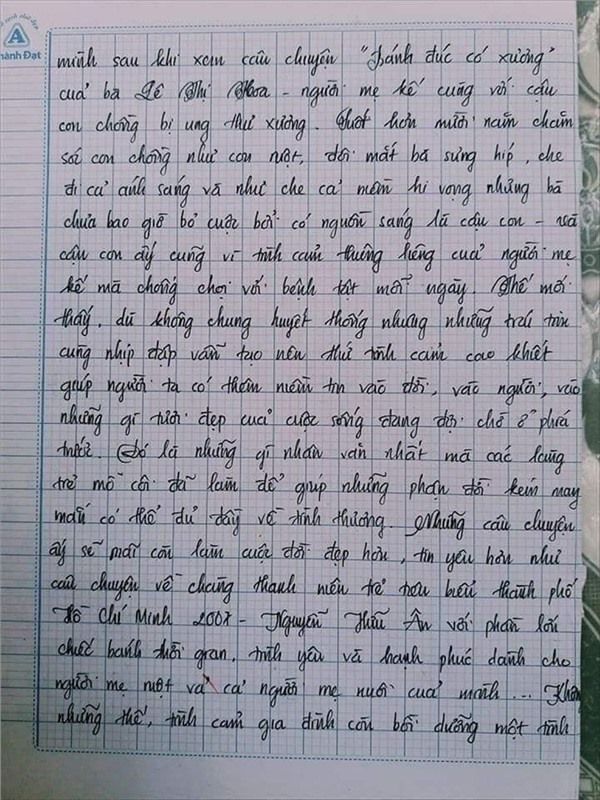 A
hành Đạt
mình sau khi xem câu chuyện "Bánh đúc có xương"
của bà Lê Thị Hoa - người mẹ kế cùng với cậu
con chồng bị ung thư xương. Suốt hơn mười năm chăm
sóc con chồng như con ruột, đôi mắt bà sưng húp, che
đi cả ánh sáng và như che cả niềm hi vọng nhưng bà
chưa bao giờ bỏ cuộc bởi có nguồn sáng là cậu con - mà
cậu con ấy cũng vì tình cảm thiêng liêng của người mẹ
kế mà chống chọi với bệnh tật mỗi ngày. Thế mới
thấy, dù không chung huyết thống nhưng những trái tim
cùng nhịp đập vẫn tạo nên thứ tình cảm cao khiết
giúp người ta có thêm niềm tin vào đời, vào người, vào
những gì tươi đẹp của cuộc sống đang đợi chờ ở phía
trước. Đó là những gì nhân văn nhất mà các làng
trẻ mồ côi đã làm để giúp những phận đời kém may
mắn có thể đủ đầy về tình thương. Những câu chuyện
ấy sẽ mãi còn làm cuộc đời đẹp hơn, tin yêu hơn như
câu chuyện về chàng thanh niên trẻ tiêu biểu thành phố
Hồ Chí Minh 2007 - Nguyễn Hữu Ân với phần lớn
chiếc bánh thời gian, tình yêu và hạnh phúc dành cho
người mẹ ruột và cả người mẹ nuôi của mình... Không
những thế, tình cảm gia đình còn bồi dưỡng một tình